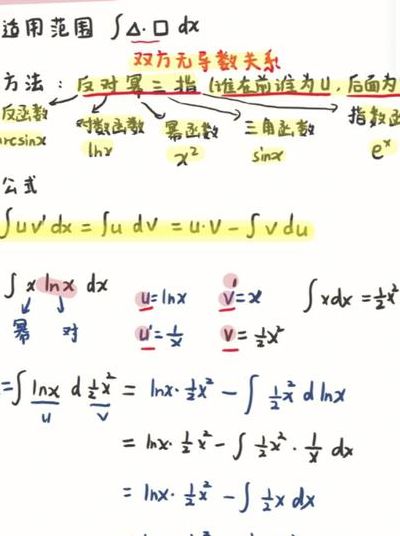 适用范围 ∫△·□ dx
双方无导数关系
方法：反对幂三指（谁在前谁为u，后面为
反函数 对数函数 幂函数 三角函数 指数函
arcsinx lnx x² sinx eˣ
公式
∫uv'dx = ∫u dv = u·v - ∫v du
∫ x lnx dx u=lnx v'=x ∫xdx = ½x²
幂 对 u'=1/x v=½x²
=∫ lnx d ½x² = lnx·½x² - ∫ ½x² d lnx
u v
= lnx·½x² - ∫ ½x²·1/x dx
= lnx·½x² - ∫ ½x dx